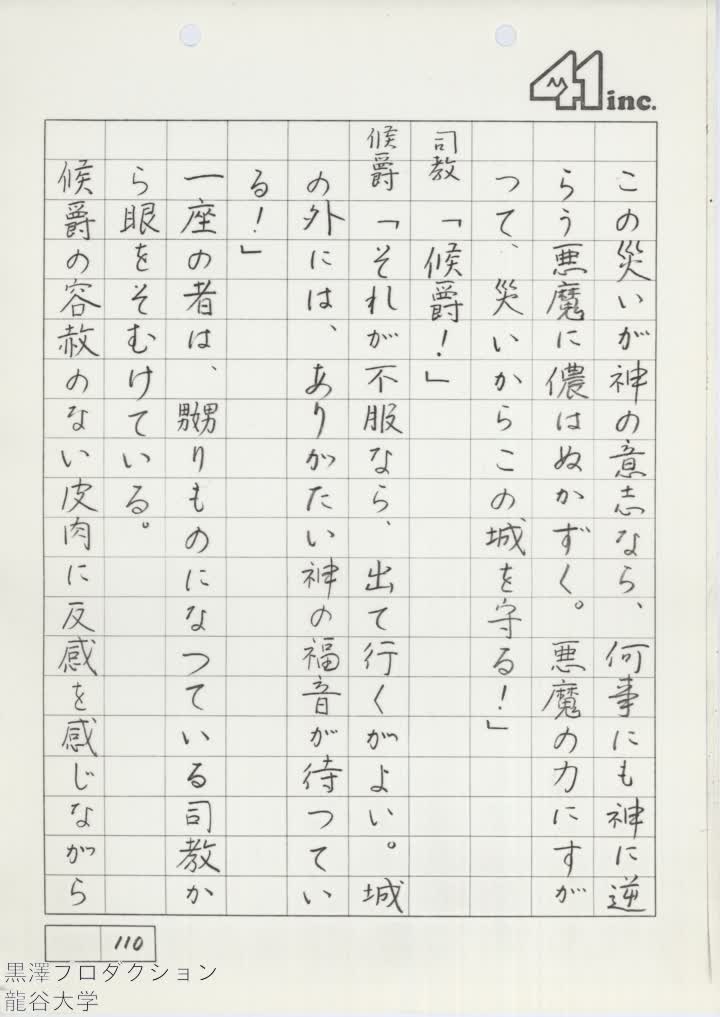 41 inc.
この災いが神の意志なら、何事にも神に逆
らう悪魔に儂はぬかずく。悪魔の力にすが
って、災いからこの城を守る！」
司教「候爵！」
候爵「それが不服なら、出て行くがよい。城
の外には、ありがたい神の福音が待つてい
る！」
一座の者は、嬲りものになつている司教か
ら眼をそむけている。
候爵の容赦のない皮肉に反感を感じながら
110
黒澤プロダクション
龍谷大学